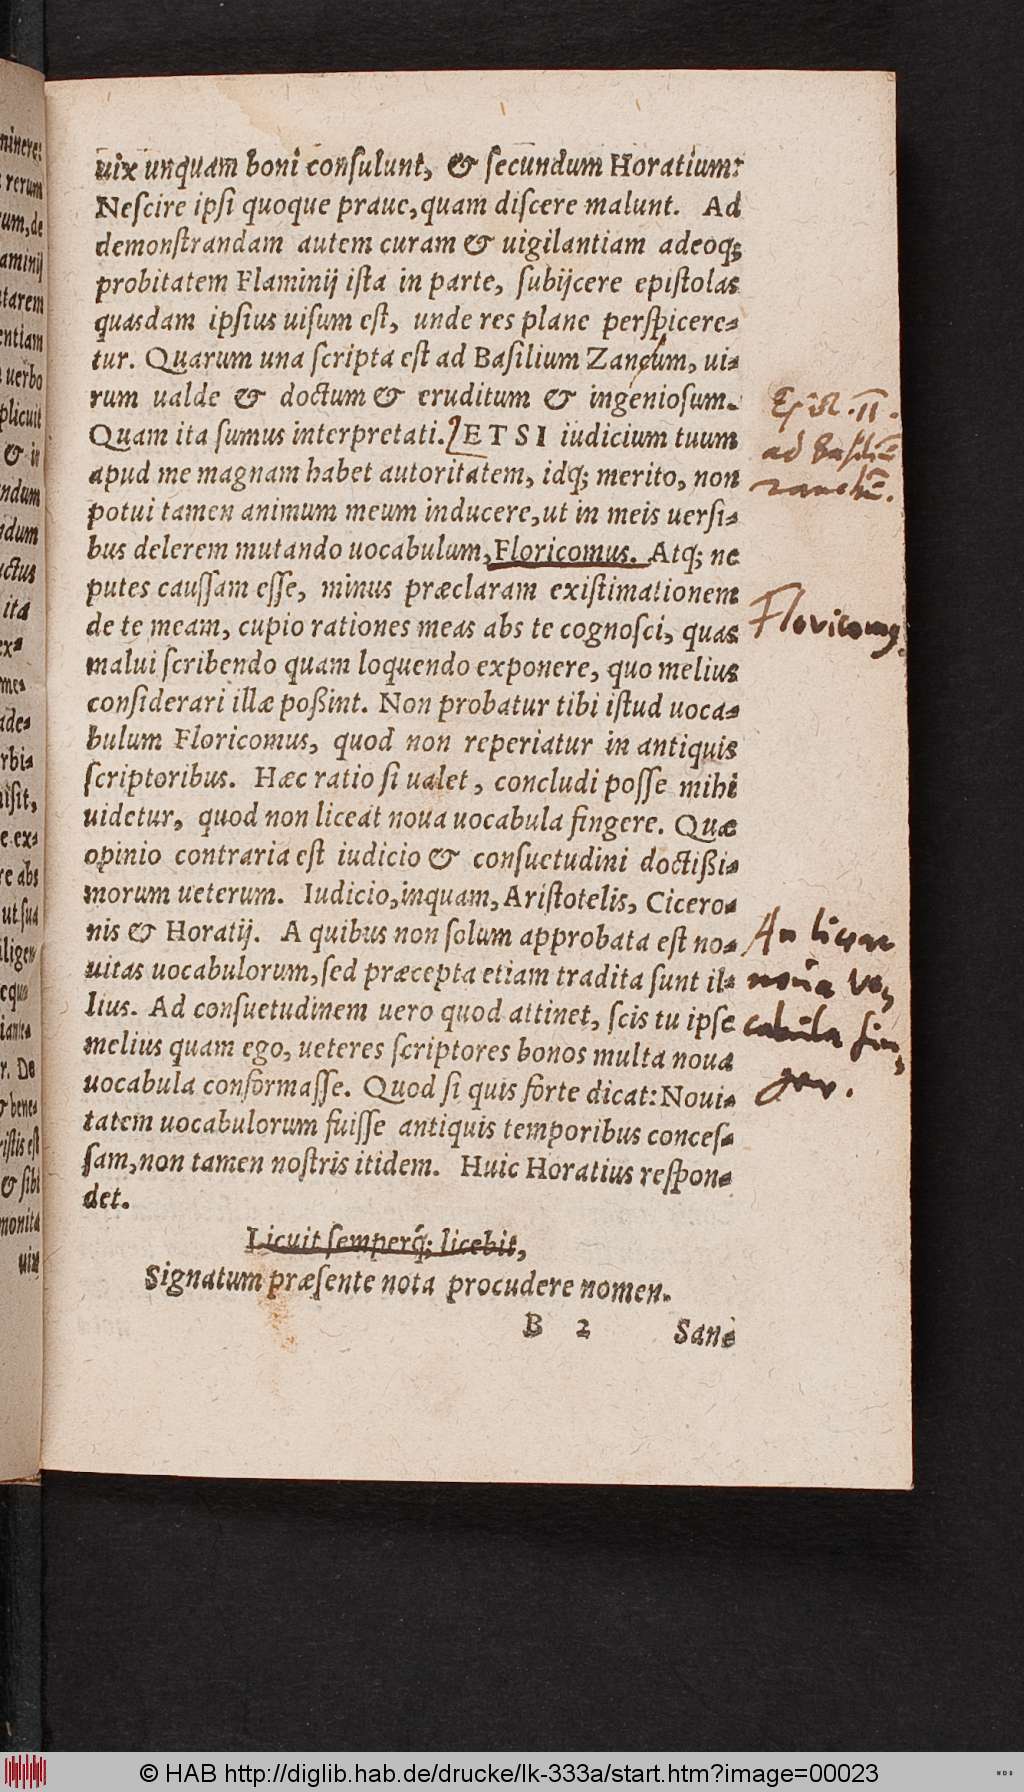 uix unquam boni conſulunt, & ſecundum Horatium:
Neſcire ipſi quoque praue, quam diſcere malunt. Ad
demonſtrandam autem curam & uigilantiam adeoq;
probitatem Flaminij iſta in parte, ſubijcere epiſtolas
quasdam ipſius uiſum eſt, unde res plane perſpicere-
tur. Quarum una ſcripta eſt ad Baſilium Zancum, ui-
rum ualde & doctum & eruditum & ingenioſum.
Quam ita ſumus interpretati. ETSI iudicium tuum
apud me magnam habet autoritatem, idq; merito, non
potui tamen animum meum inducere, ut in meis uerſi-
bus delerem mutando uocabulum, Floricomus. Atq; ne
putes cauſſam eſſe, minus præclaram exiſtimationem
de te meam, cupio rationes meas abs te cognoſci, quas
malui ſcribendo quam loquendo exponere, quo melius
conſiderari illæ poßint. Non probatur tibi iſtud uoca-
bulum Floricomus, quod non reperiatur in antiquis
ſcriptoribus. Hæc ratio ſi ualet, concludi poſſe mihi
uidetur, quod non liceat noua uocabula fingere. Quæ
opinio contraria eſt iudicio & conſuetudini doctißi-
morum ueterum. Iudicio, inquam, Ariſtotelis, Cicero-
nis & Horatij. A quibus non ſolum approbata eſt no-
uitas uocabulorum, ſed præcepta etiam tradita ſunt il-
lius. Ad conſuetudinem uero quod attinet, ſcis tu ipſe
melius quam ego, ueteres ſcriptores bonos multa noua
uocabula conformaſſe. Quod ſi quis forte dicat: Noui-
tatem uocabulorum fuiſſe antiquis temporibus conceſ-
ſam, non tamen noſtris itidem. Huic Horatius reſpon-
det.
Licuit ſemperq́; licebit,
Signatum præſente nota procudere nomen.
B 2 Sane
II.
ad Baſiliū
zanchiū.
Floricomus
An licear
noua vo-
cabula fin-
ger.
© HAB http://diglib.hab.de/drucke/lk-333a/start.htm?image=00023